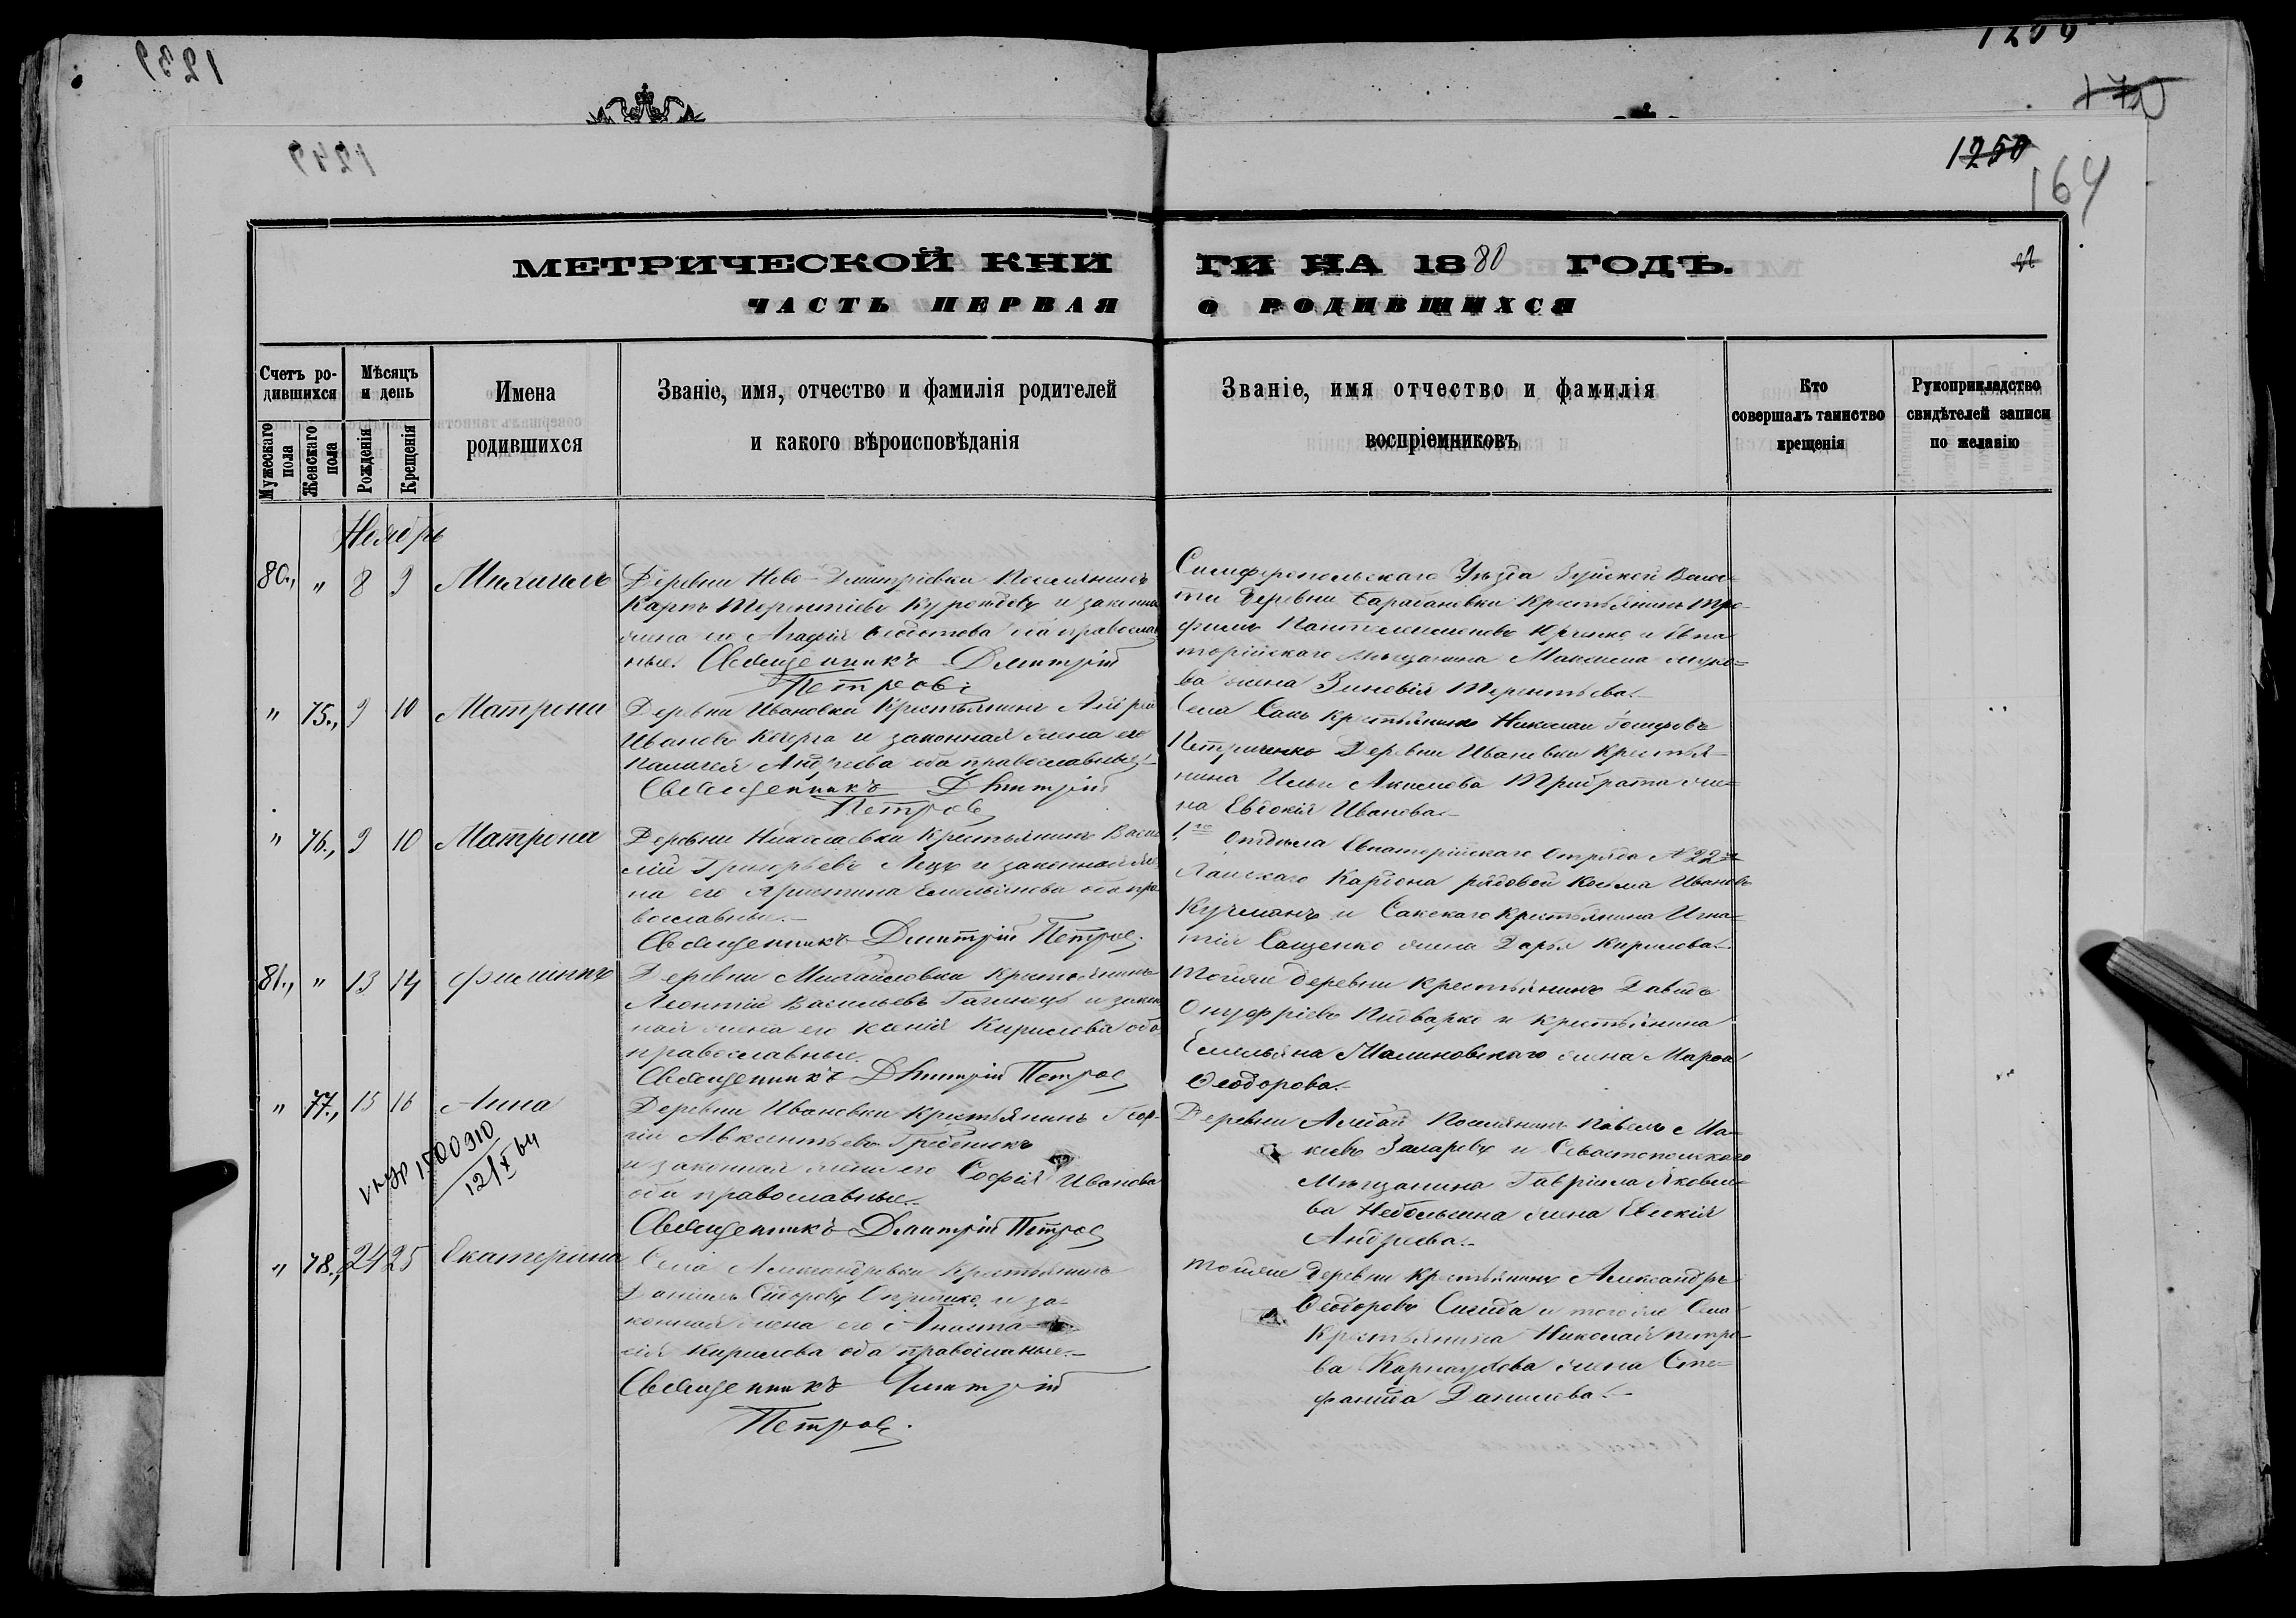 1239
1249
1250
170
1250
164
МЕТРИЧЕСКОЙ КНИ ГИ НА 1880 ГОДЪ.
ЧАСТЬ ПЕРВАЯ О РОДИВШИХСЯ
Счетъ ро-
дившихся
Мужескаго пола
Женскаго пола
Мѣсяцъ
и день
Рожденія
Крещенія
Имена
родившихся
Званіе, имя, отчество и фамилія родителей
и какого вѣроисповѣданія
Званіе, имя отчество и фамилія
воспріемниковъ
Кто
совершалъ таинство
крещенія
Рукоприкладство
свидѣтелей записи
по желанію
Ноябрь
80., " 8 9 Михаилъ
Деревни Ново-Дмитріевки Поселянинъ
Карпъ Терентіевъ и законная
жена его Агафія Ѳедотова оба православ
ные. Священникъ Дмитрій
Петровъ
Симферопольскаго Уѣзда Зуйской Волос-
ти Деревни Барабановки Крестьянинъ Тро-
фимъ Пантелеимоновъ Юрченко и Евпа
торійскаго мѣщанина Максима
ва жена Зиновія Терентьева.
" 75., 9 10 Матрона
Деревни Ивановки Крестьянинъ Андрей
Ивановъ Кочерга и законная жена его
Пелагея Андреева оба православные
Священникъ Дмитрій
Петровъ
Села Сакъ Крестьянинъ Николай Іосифовъ
Петриченко Деревни Ивановки Крестья-
нина Ильи Акимова Трибрата же-
на Евдокія Иванова.
" 76., 9 10 Матрона
Деревни Николаевки Крестьянинъ Васи
лій Григорьевъ и законная же
на его Христина Емельянова оба пра
вославные.
Священникъ Дмитрій Петровъ.
1го Отдѣла Евпаторійскаго Отряда №22го
Кардона рядовой Косьма Ивановъ
Кучманъ и Сакскаго Крестьянина Игна-
тія Сащенко жена Дарья Кирилова.
81., " 13 14 Филиппъ
Деревни Михайловки Крестьянинъ
Леонтій Васильевъ и закон
ная жена его Ксенія Кирилова оба
православные.
Священникъ Дмитрій Петровъ
Тойже деревни Крестьянинъ Давидъ
Онуфріевъ Пивварко и Крестьянина
Емельяна Малиновскаго жена Марѳа
Ѳеодорова.
" 77., 15 16 Анна
1500910
12/X 64
Деревни Ивановки Крестьянинъ Геор-
гій Авксентьевъ Гребенникъ
и законная жена его Софія Иванова
оба православные.
Священникъ Дмитрій Петровъ
Деревни Поселянинъ Павелъ
и Севастопольскаго
Мѣщанина Гавріила Яковле-
ва Небольсина жена Евдокія
Андреева.
" 78., 24 25 Екатерина
Села Александровки Крестьянинъ
Даніилъ Сидоровъ Опришко и за-
конная жена его Анаста-
сія Кирилова оба православные.
Священникъ Дмитрій
Петровъ.
Тойже деревни Крестьянинъ Александръ
Ѳеодоровъ Сигида и того же Села
Крестьянина Николая Петро-
ва Карнаухова жена Сте-
фанида Данилова.